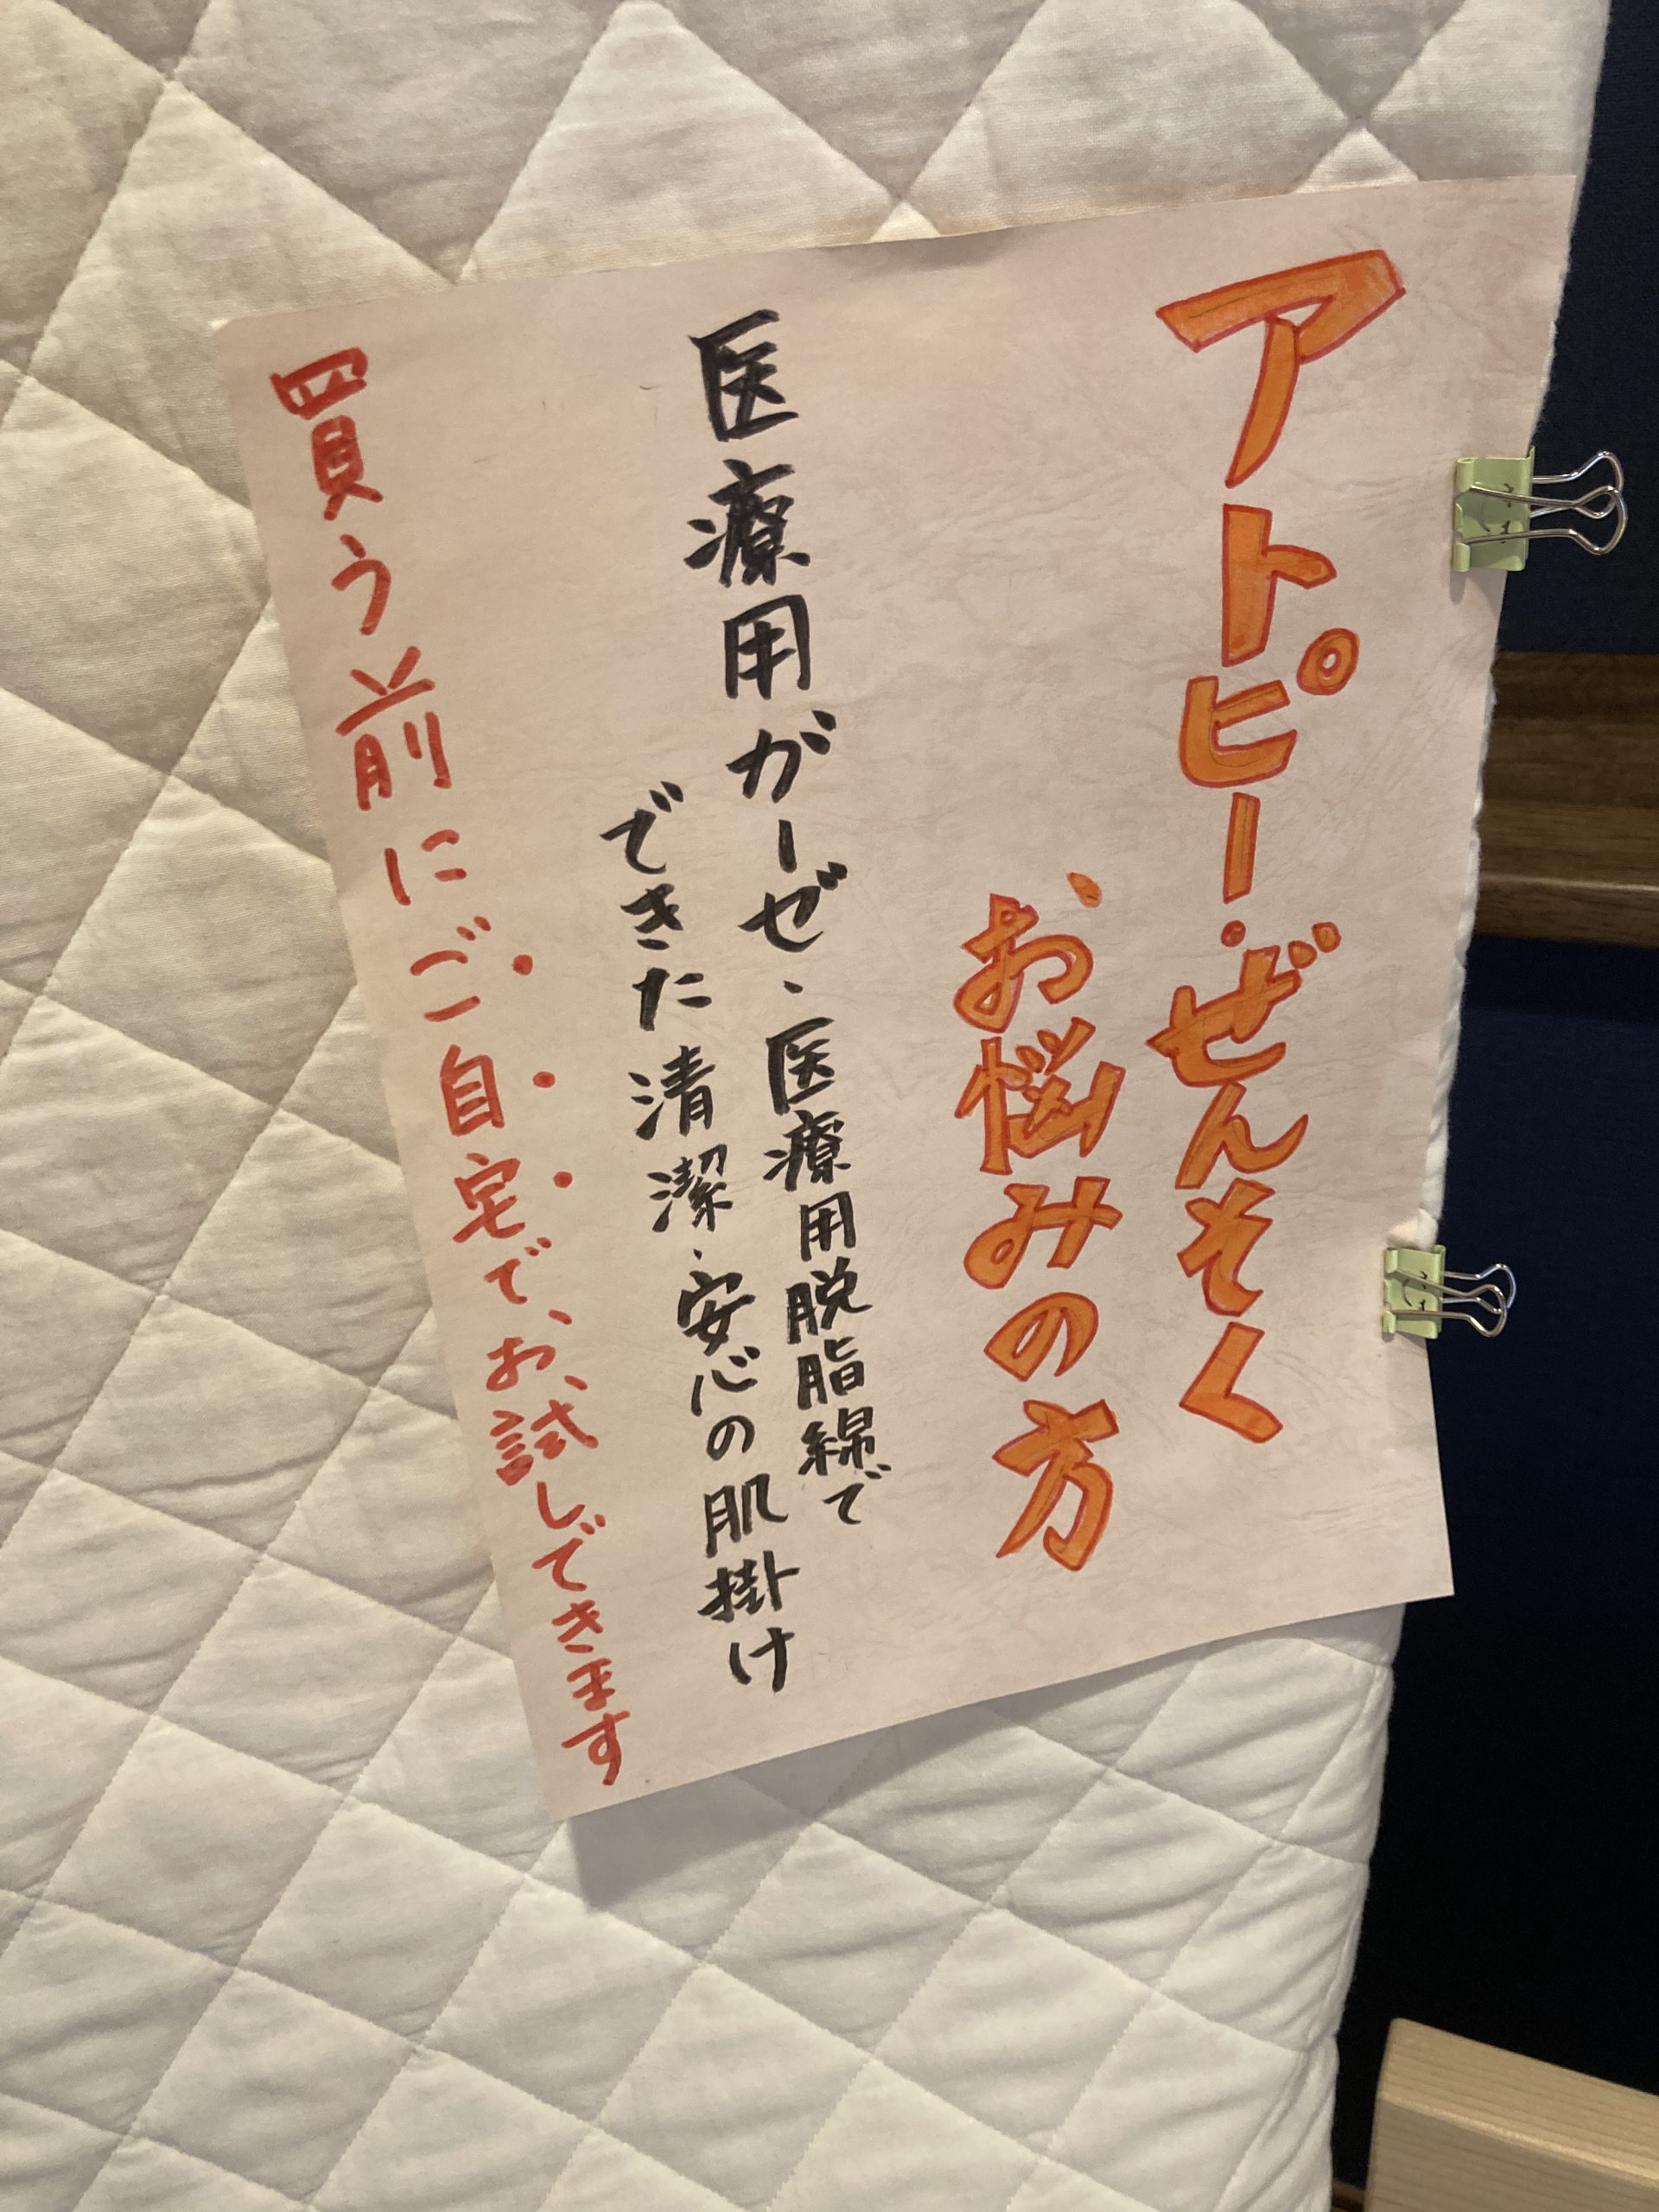 アトピー・ぜんそく
お悩みの方
医療用ガーゼ・医療用脱脂綿で
できた清潔・安心の肌掛け
買う前にご自宅で、お試しできます